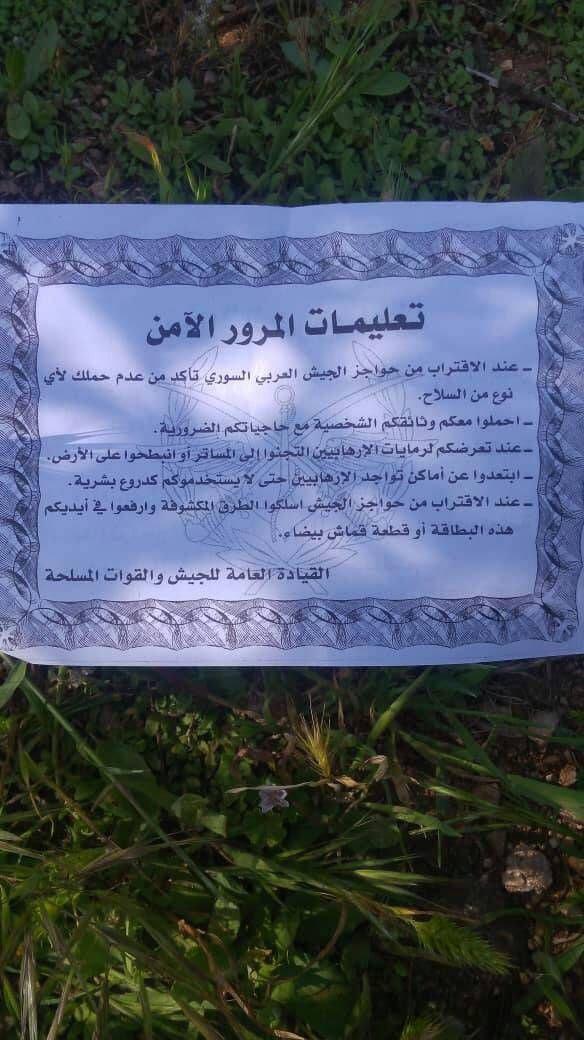 تعليمات المرور الآمن
ـ عند الاقتراب من حواجز الجيش العربي السوري تأكد من عدم حملك لأي
نوع من السلاح.
ـ احملوا معكم وثائقكم الشخصية مع حاجياتكم الضرورية.
ـ عند تعرضكم لرمايات الإرهابيين التجئوا إلى المساتر أو انبطحوا على الأرض.
ـ ابتعدوا عن أماكن تواجد الإرهابيين حتى لا يستخدموكم كدروع بشرية.
ـ عند الاقتراب من حواجز الجيش اسلكوا الطرق المكشوفة وارفعوا في أيديكم
هذه البطاقة أو قطعة قماش بيضاء.
القيادة العامة للجيش والقوات المسلحة